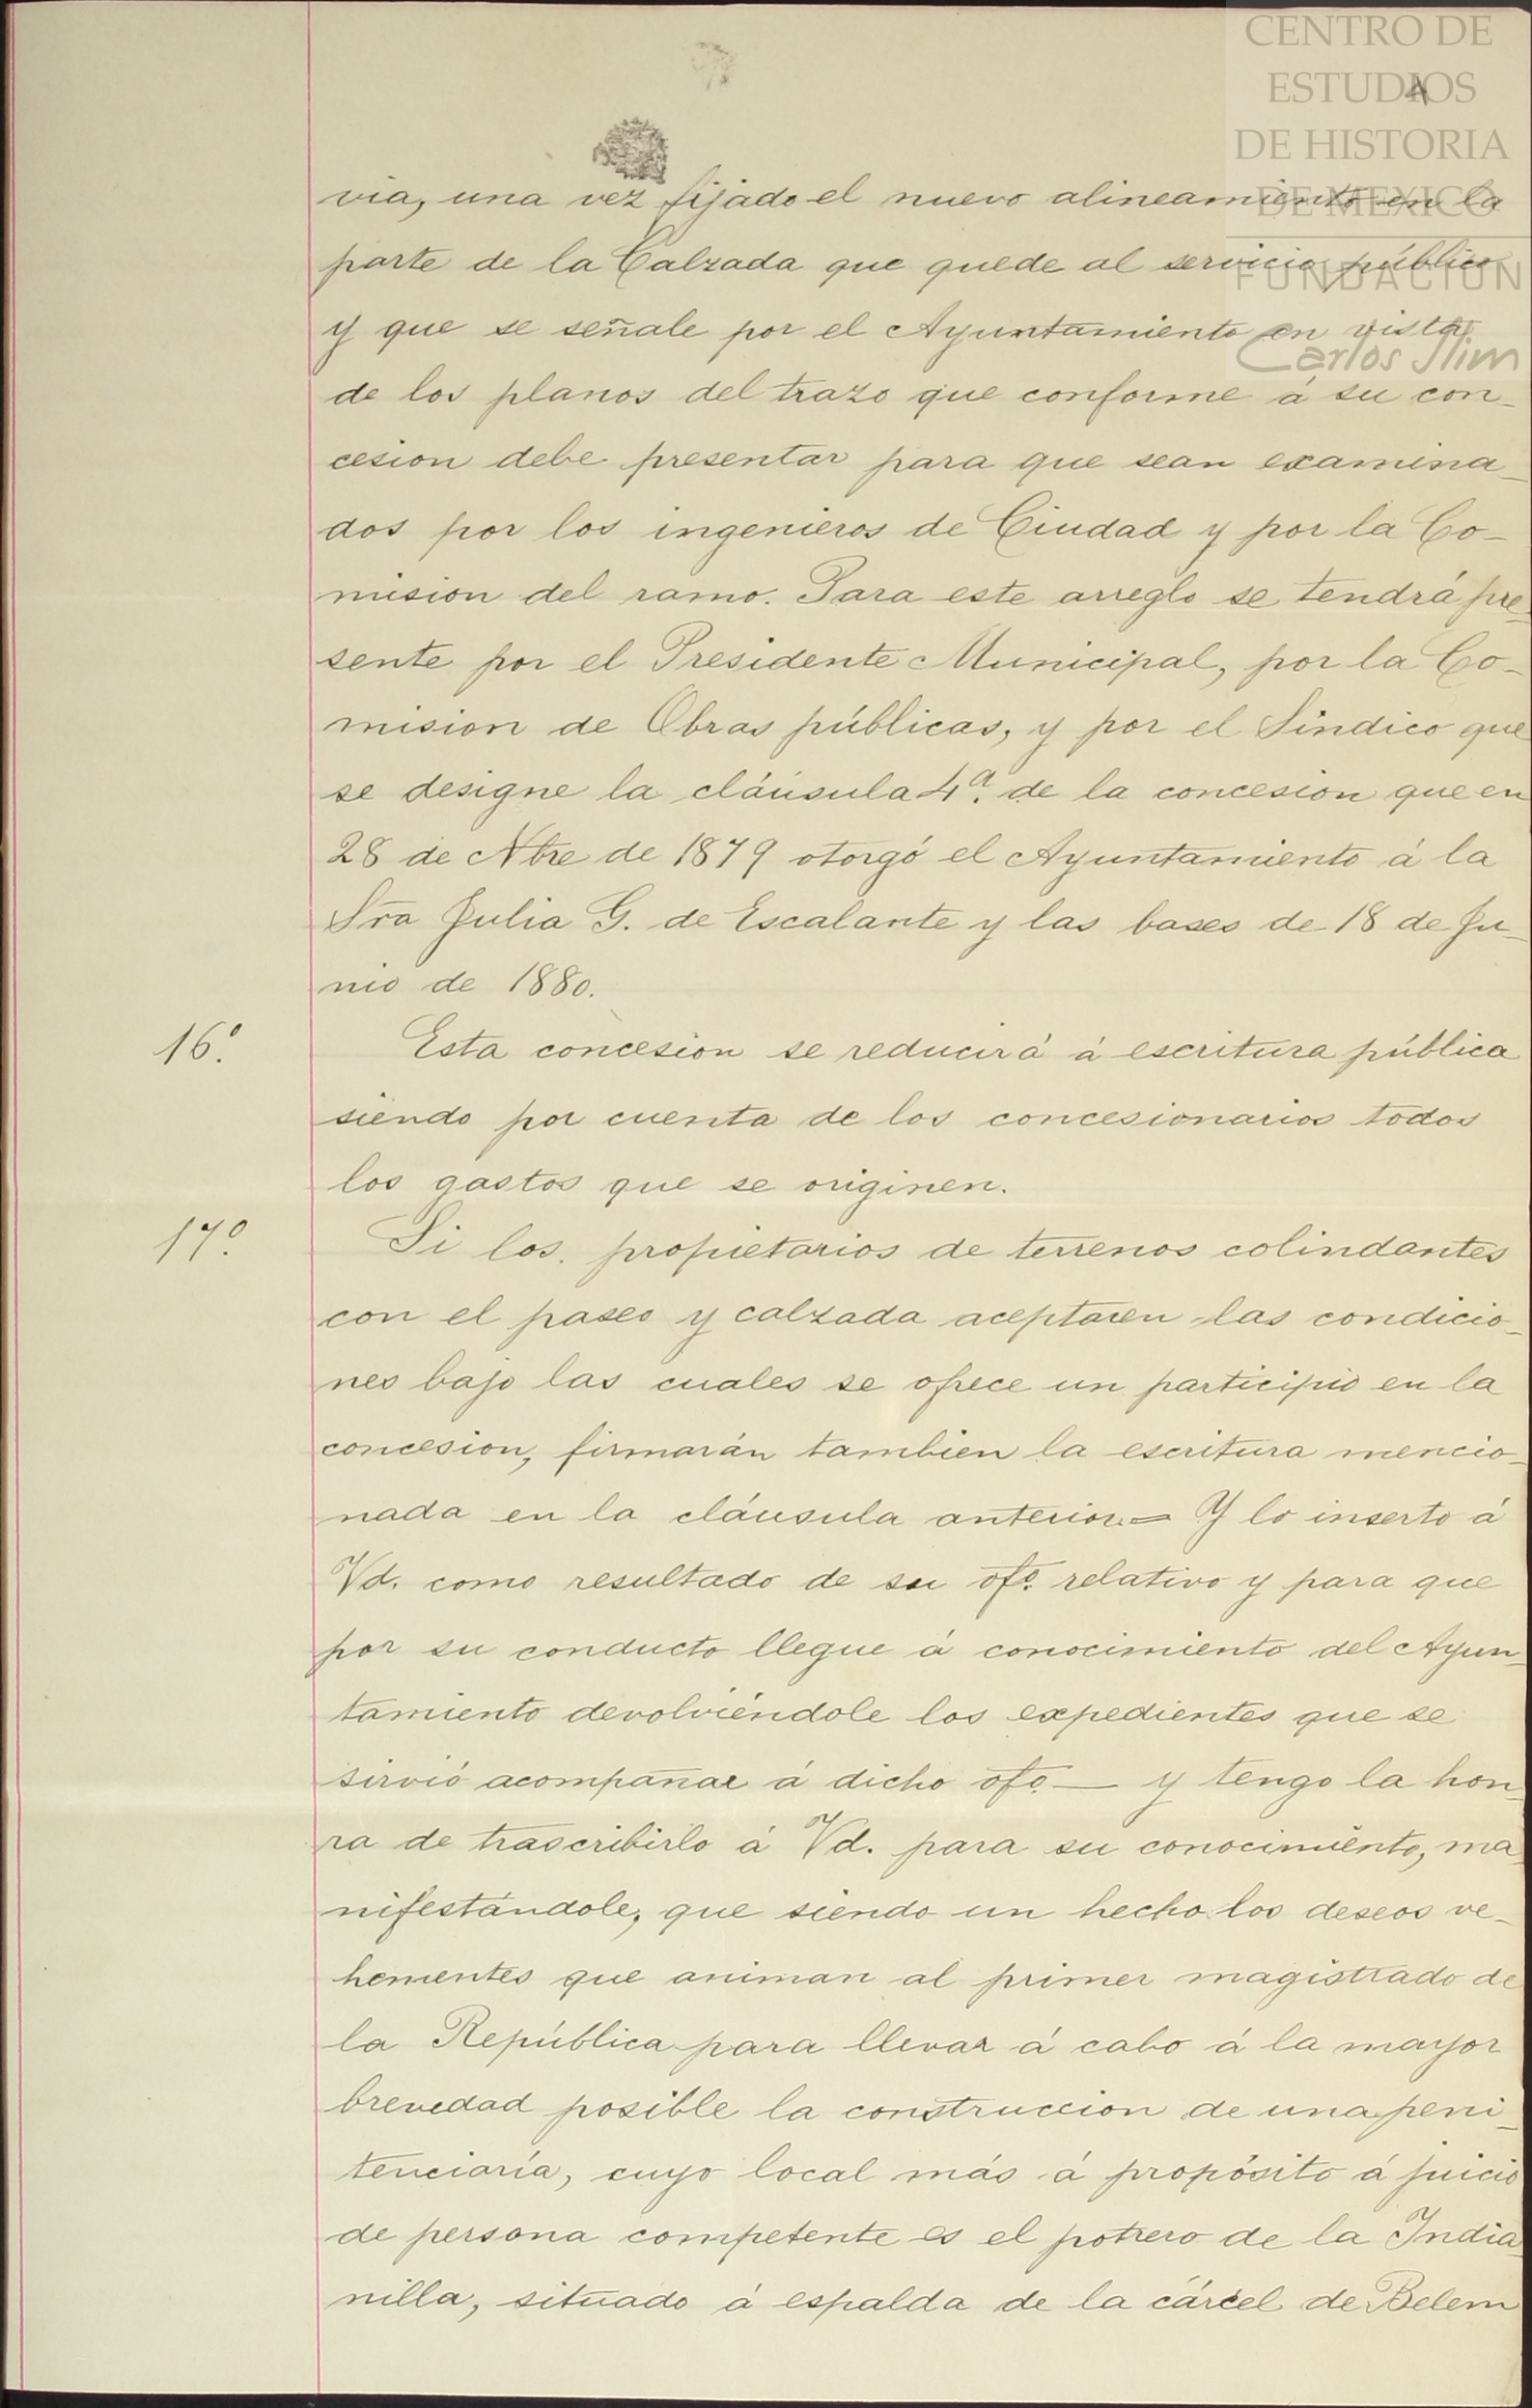 CENTRO DE
ESTUDIOS
DE HISTORIA
DE MEXICO
FUNDACIÓN
Carlos Slim
4
via, una vez fijado el nuevo alineamiento en la
parte de la Calzada que quede al servicio público
y que se señale por el Ayuntamiento en vista
de los planos del trazo que conforme á su con-
cesion debe presentar para que sean examina-
dos por los ingenieros de Ciudad y por la Co-
mision del ramo. Para este arreglo se tendrá pre-
sente por el Presidente Municipal, por la Co-
mision de Obras públicas, y por el Síndico que
se designe la cláusula 4ª. de la concesion que en
28 de Nbre de 1879 otorgó el Ayuntamiento á la
Sra Julia G. de Escalante y las bases de 18 de Ju-
nio de 1880.
16º. Esta concesion se reducirá á escritura pública
siendo por cuenta de los concesionarios todos
los gastos que se originen.
17º. Si los propietarios de terrenos colindantes
con el paseo y calzada aceptaren las condicio-
nes bajo las cuales se ofrece un participio en la
concesion, firmarán tambien la escritura mencio-
nada en la cláusula anterior.= Y lo inserto á
Vd. como resultado de su ofº. relativo y para que
por su conducto llegue á conocimiento del Ayun-
tamiento devolviéndole los expedientes que se
sirvió acompañar á dicho ofº.— y tengo la hon-
ra de trascribirlo á Vd. para su conocimiento, ma-
nifestándole, que siendo un hecho los deseos ve-
hementes que animan al primer magistrado de
la República para llevar á cabo á la mayor
brevedad posible la construccion de una peni-
tenciaría, cuyo local más á propósito á juicio
de persona competente es el potrero de la India-
nilla, situado á espalda de la cárcel de Belem